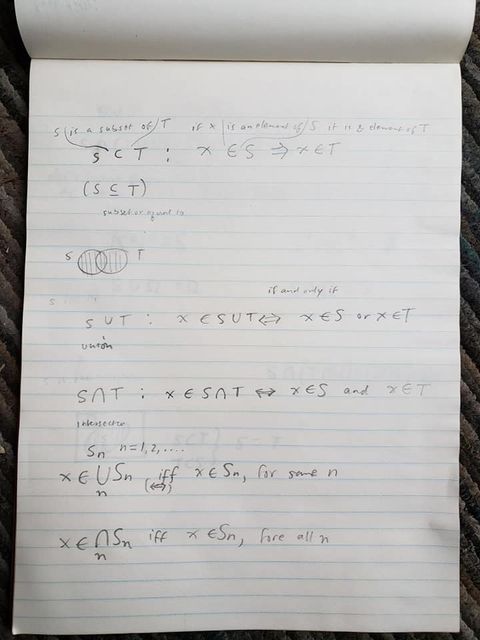 S is a subset of T if x is an element of S it is element of T
S ⊂ T : x ∈ S ⇒ x ∈ T
(S ⊆ T)
subset or equal to
S T
if and only if
S ∪ T : x ∈ S ∪ T ⇔ x ∈ S or x ∈ T
union
S ∩ T : x ∈ S ∩ T ⇔ x ∈ S and x ∈ T
Sn n = 1, 2, ....
x ∈ ∪ Sn iff x ∈ Sn, for some n
n (⇔)
x ∈ ∩ Sn iff x ∈ Sn, fore all n
n